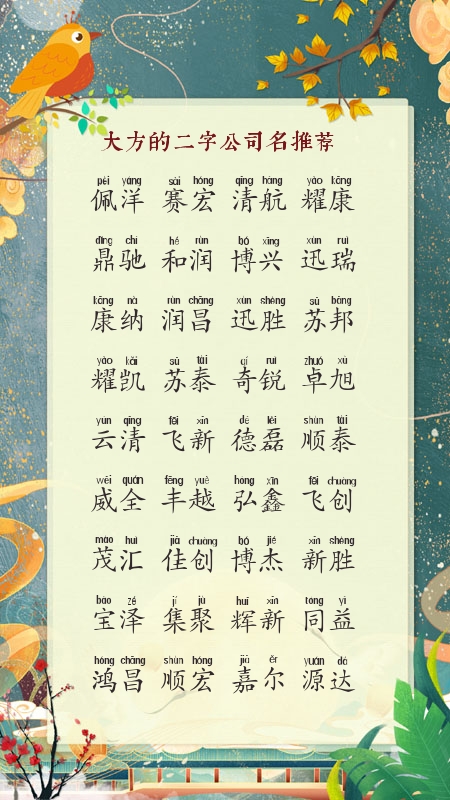 大方的二字公司名推荐
pèi yáng sài hóng qīng háng yào kāng
佩洋 赛宏 清航 耀康
dǐng chí hé rùn bó xīng xùn ruì
鼎驰 和润 博兴 迅瑞
kāng nà rùn chāng xùn shèng sū bāng
康纳 润昌 迅胜 苏邦
yào kǎi sū tài qí ruì zhuó xù
耀凯 苏泰 奇锐 卓旭
yún qīng fēi xīn dé lěi shùn tài
云清 飞新 德磊 顺泰
wēi quán fēng yuè hóng xīn fēi chuàng
威全 丰越 弘鑫 飞创
mào huì jiā chuàng bó jié xīn shèng
茂汇 佳创 博杰 新胜
bǎo zé jí jù huī xīn tóng yì
宝泽 集聚 辉新 同益
hóng chāng shùn hóng jiā ěr yuán dá
鸿昌 顺宏 嘉尔 源达